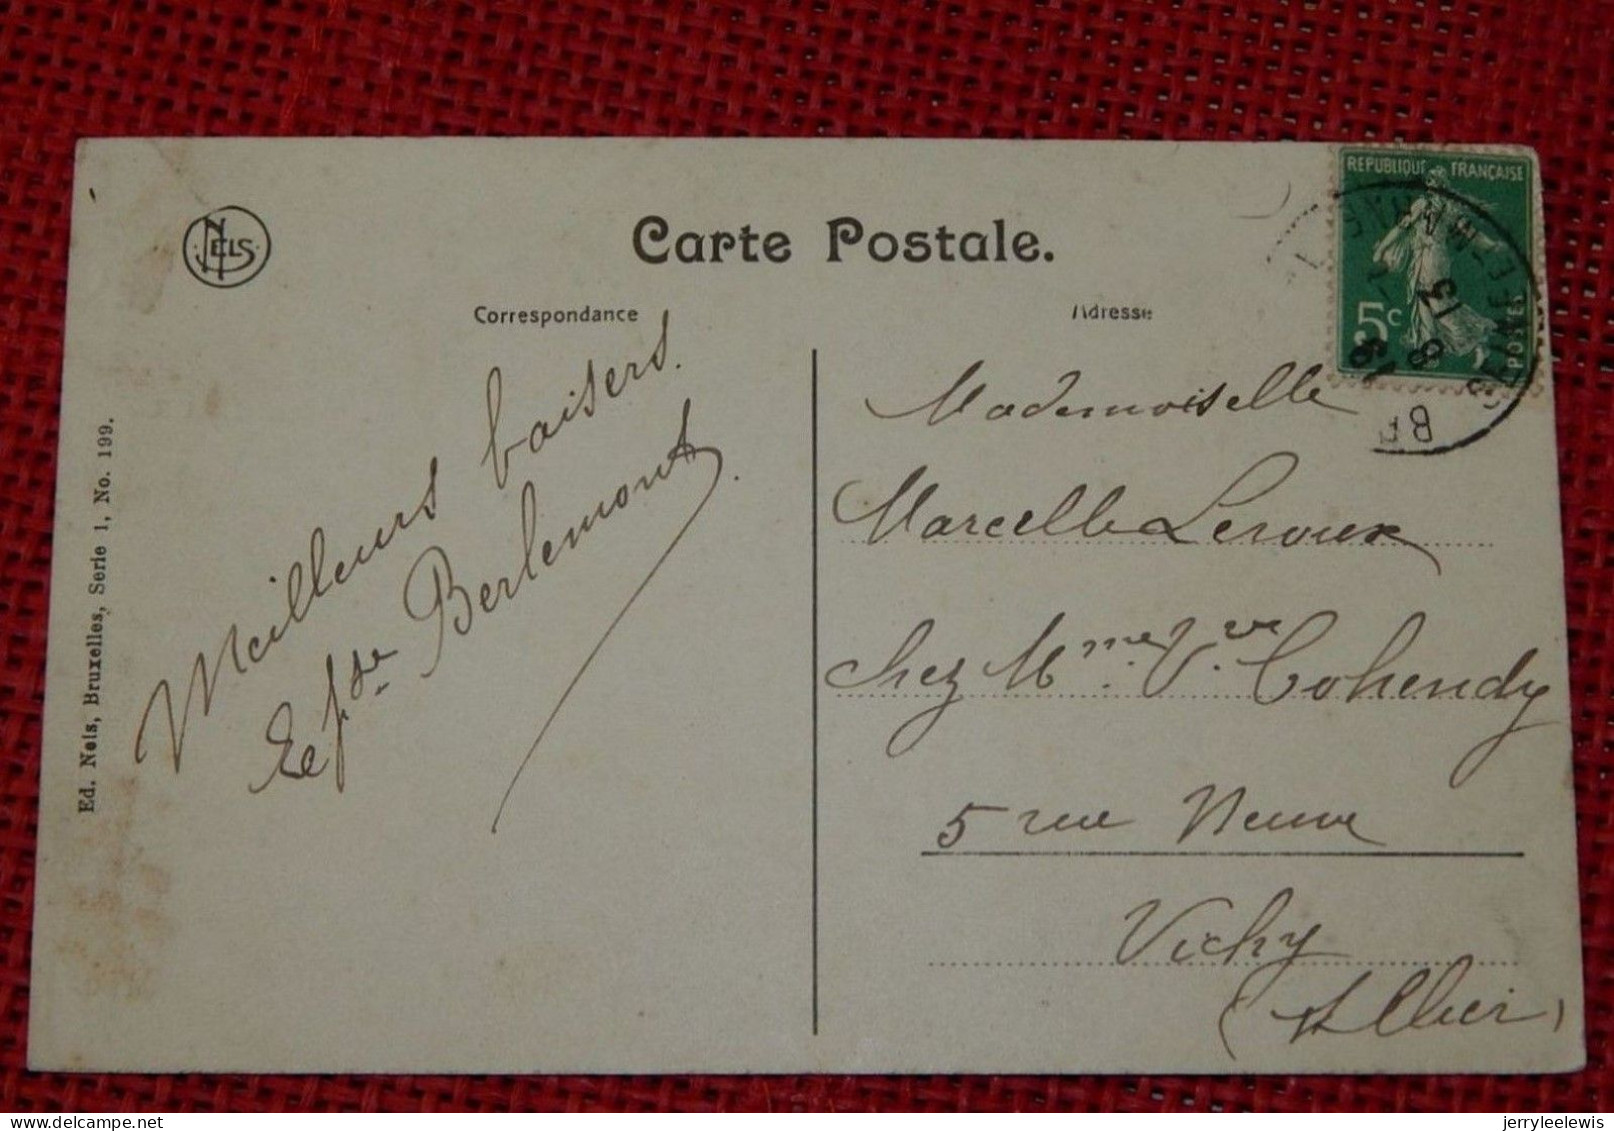 NELS
Carte Postale.
Correspondance
Adresse
REPUBLIQUE FRANÇAISE
5c
POSTES
13
Ed. Nels, Bruxelles, Serie 1, No. 199.
Meilleurs baisers.
Berlemont.
Mademoiselle
Marcelle Leroux
Chez Mme Vve Cohendy
5 rue Neuve
Vichy
(Allier)
jerryleelewis